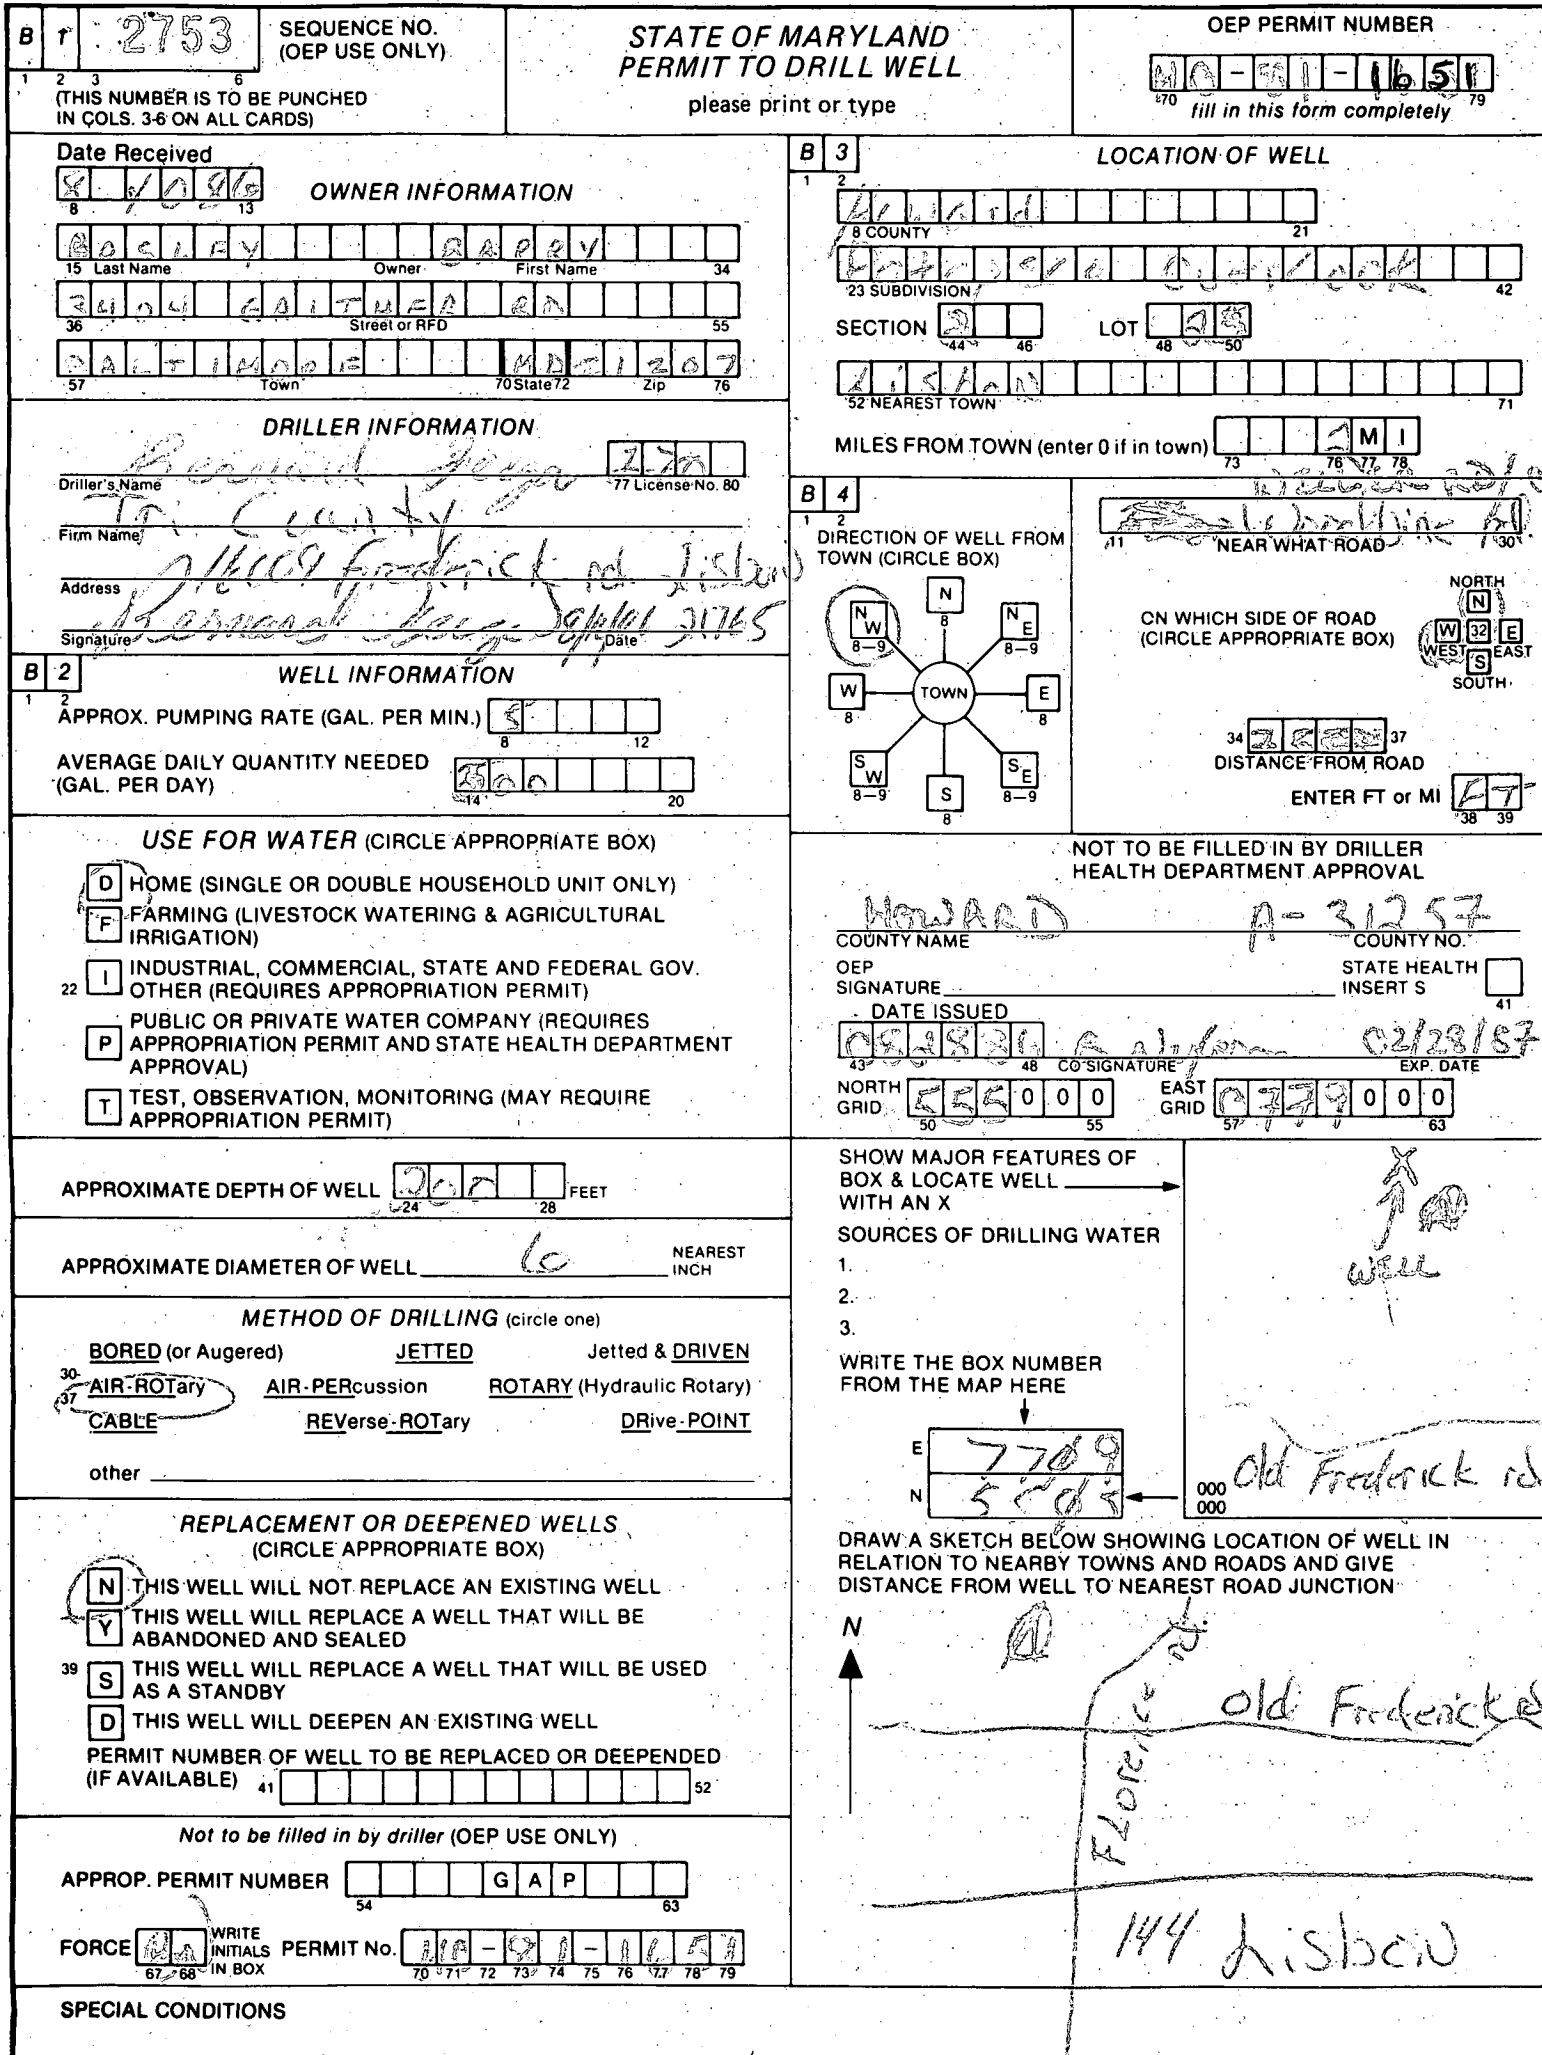 B 1 2753 SEQUENCE NO. (OEP USE ONLY)
1 2 3 6
(THIS NUMBER IS TO BE PUNCHED
IN COLS. 3-6 ON ALL CARDS)
STATE OF MARYLAND
PERMIT TO DRILL WELL
please print or type
OEP PERMIT NUMBER
HO-81-1651
70 79
fill in this form completely
Date Received
8 13
OWNER INFORMATION
BARRY
15 Last Name Owner First Name 34
GAITHER RD
36 Street or RFD 55
BALTIMORE MD 21207
57 Town 70 State 72 Zip 76
DRILLER INFORMATION
Bernard
Driller's Name 77 License No. 80
Tri County
Firm Name
Frederick rd. Lisbon
Address
Bernard 21765
Signature Date
B 2 WELL INFORMATION
1 2
APPROX. PUMPING RATE (GAL. PER MIN.) 5
8 12
AVERAGE DAILY QUANTITY NEEDED
(GAL. PER DAY) 500
14 20
USE FOR WATER (CIRCLE APPROPRIATE BOX)
D HOME (SINGLE OR DOUBLE HOUSEHOLD UNIT ONLY)
F FARMING (LIVESTOCK WATERING & AGRICULTURAL
IRRIGATION)
22 I INDUSTRIAL, COMMERCIAL, STATE AND FEDERAL GOV.
OTHER (REQUIRES APPROPRIATION PERMIT)
P PUBLIC OR PRIVATE WATER COMPANY (REQUIRES
APPROPRIATION PERMIT AND STATE HEALTH DEPARTMENT
APPROVAL)
T TEST, OBSERVATION, MONITORING (MAY REQUIRE
APPROPRIATION PERMIT)
APPROXIMATE DEPTH OF WELL 200 FEET
24 28
APPROXIMATE DIAMETER OF WELL 6 NEAREST
INCH
METHOD OF DRILLING (circle one)
BORED (or Augered) JETTED Jetted & DRIVEN
30-37 AIR-ROTary AIR-PERcussion ROTARY (Hydraulic Rotary)
CABLE REVerse-ROTary DRive-POINT
other
REPLACEMENT OR DEEPENED WELLS
(CIRCLE APPROPRIATE BOX)
N THIS WELL WILL NOT REPLACE AN EXISTING WELL
Y THIS WELL WILL REPLACE A WELL THAT WILL BE
ABANDONED AND SEALED
39 S THIS WELL WILL REPLACE A WELL THAT WILL BE USED
AS A STANDBY
D THIS WELL WILL DEEPEN AN EXISTING WELL
PERMIT NUMBER OF WELL TO BE REPLACED OR DEEPENDED
(IF AVAILABLE) 41 52
Not to be filled in by driller (OEP USE ONLY)
APPROP. PERMIT NUMBER GAP
54 63
FORCE WRITE INITIALS IN BOX PERMIT No. HO-81-1651
67 68 70 71 72 73 74 75 76 77 78 79
SPECIAL CONDITIONS
B 3 LOCATION OF WELL
1 2
Howard
8 COUNTY 21
Overlook
23 SUBDIVISION 42
SECTION 2 LOT 28
44 46 48 50
Lisbon
52 NEAREST TOWN 71
MILES FROM TOWN (enter 0 if in town) MI
73 76 77 78
B 4
1 2
DIRECTION OF WELL FROM
TOWN (CIRCLE BOX)
N 8
NE 8-9
E 8
SE 8-9
S 8
SW 8-9
W 8
NW 8-9
TOWN
11 NEAR WHAT ROAD 30
ON WHICH SIDE OF ROAD
(CIRCLE APPROPRIATE BOX)
NORTH
N
W 32 E
WEST EAST
S
SOUTH
34 37
DISTANCE FROM ROAD
ENTER FT or MI FT
38 39
NOT TO BE FILLED IN BY DRILLER
HEALTH DEPARTMENT APPROVAL
HOWARD A-31257
COUNTY NAME COUNTY NO.
OEP
SIGNATURE
STATE HEALTH
INSERT S
41
DATE ISSUED
082886 02/28/87
43 48 CO SIGNATURE EXP. DATE
NORTH GRID 555000 EAST GRID 0779000
50 55 57 63
SHOW MAJOR FEATURES OF
BOX & LOCATE WELL
WITH AN X
SOURCES OF DRILLING WATER
1.
2.
3.
WRITE THE BOX NUMBER
FROM THE MAP HERE
E 7709
N 5505
X
WELL
000
000
Old Frederick rd
DRAW A SKETCH BELOW SHOWING LOCATION OF WELL IN
RELATION TO NEARBY TOWNS AND ROADS AND GIVE
DISTANCE FROM WELL TO NEAREST ROAD JUNCTION
N
Florence rd.
Old Frederick rd
144 Lisbon